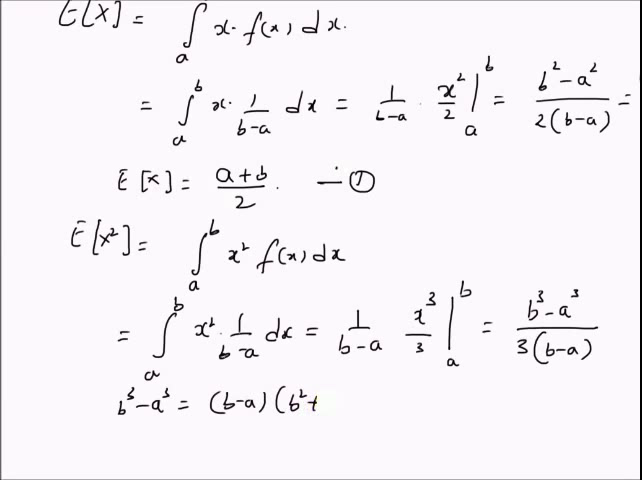 E[X] = ∫ₐ x· f(x) dx.
= ∫ₐᵇ x· 1/(b-a) dx = 1/(b-a) · x²/2 |ₐᵇ = (b²-a²)/(2(b-a)) =
E[X] = (a+b)/2. — ①
E[X²] = ∫ₐᵇ x² f(x) dx
= ∫ₐᵇ x² · 1/(b-a) dx = 1/(b-a) x³/3 |ₐᵇ = (b³-a³)/(3(b-a))
b³-a³ = (b-a) (b²+